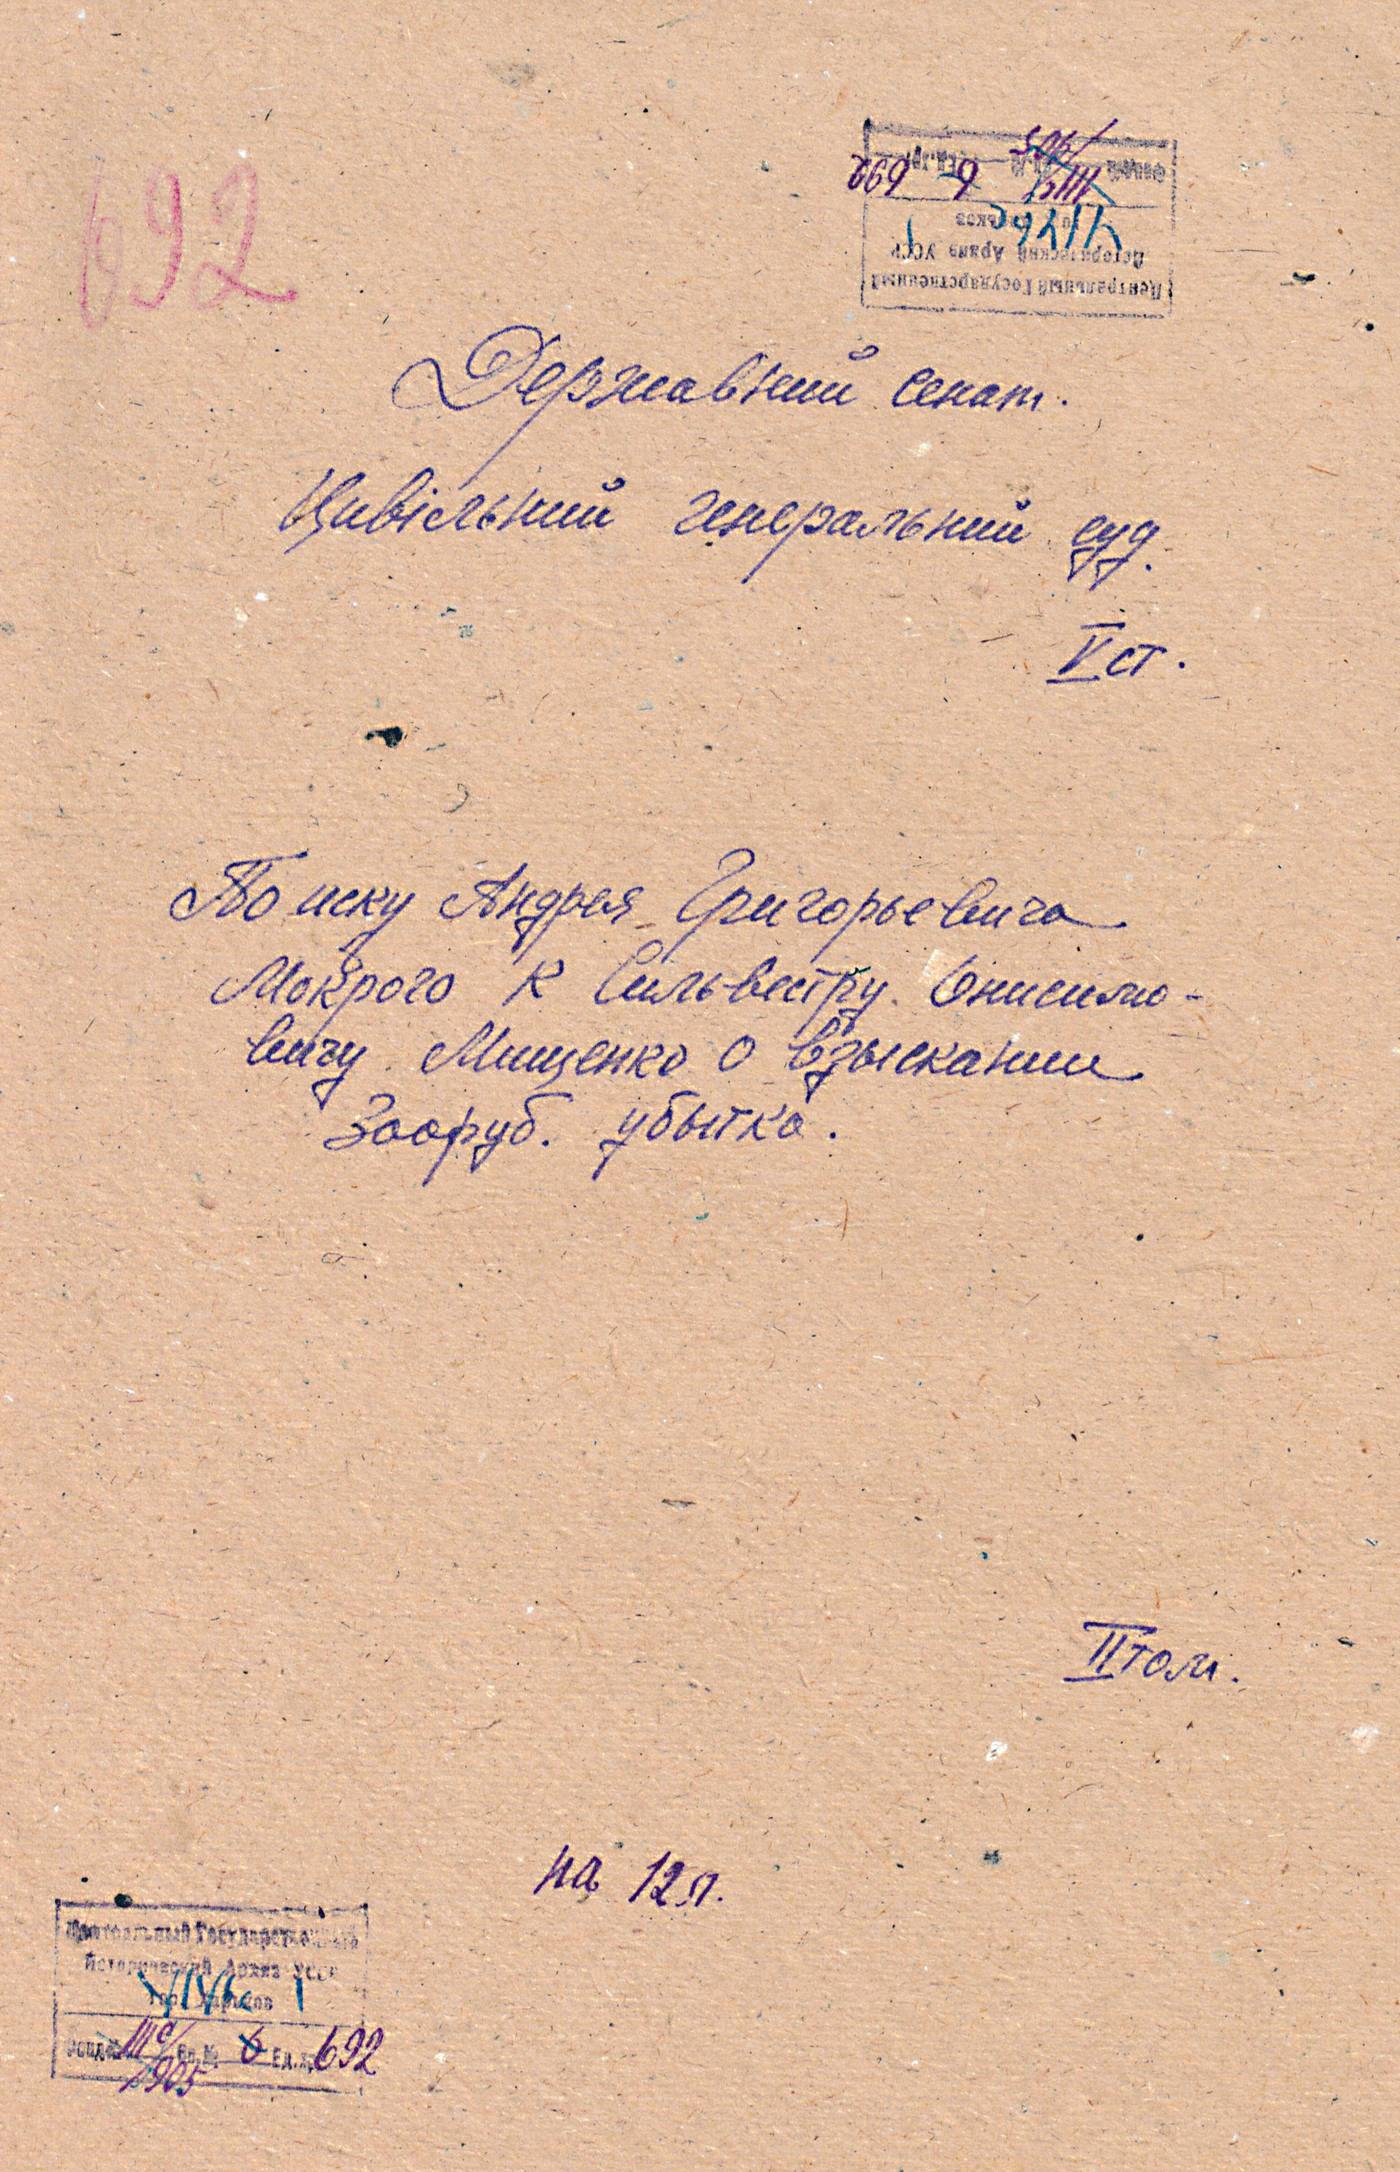 692
Центральный Государственный
Исторический Архив УССР
692
Державний сенат.
Цивільний генеральний суд.
V ст.
По иску Андрея Григорьевича
Мокрого к Сильвестру Онисимо-
вичу Мищенко о взыскании
300 руб. убытка.
II том.
на 12 л.
Центральный Государственный
Исторический Архив УССР
гор. Харьков
Фонд № III с/2905 Оп. № 6 Ед. х. 692